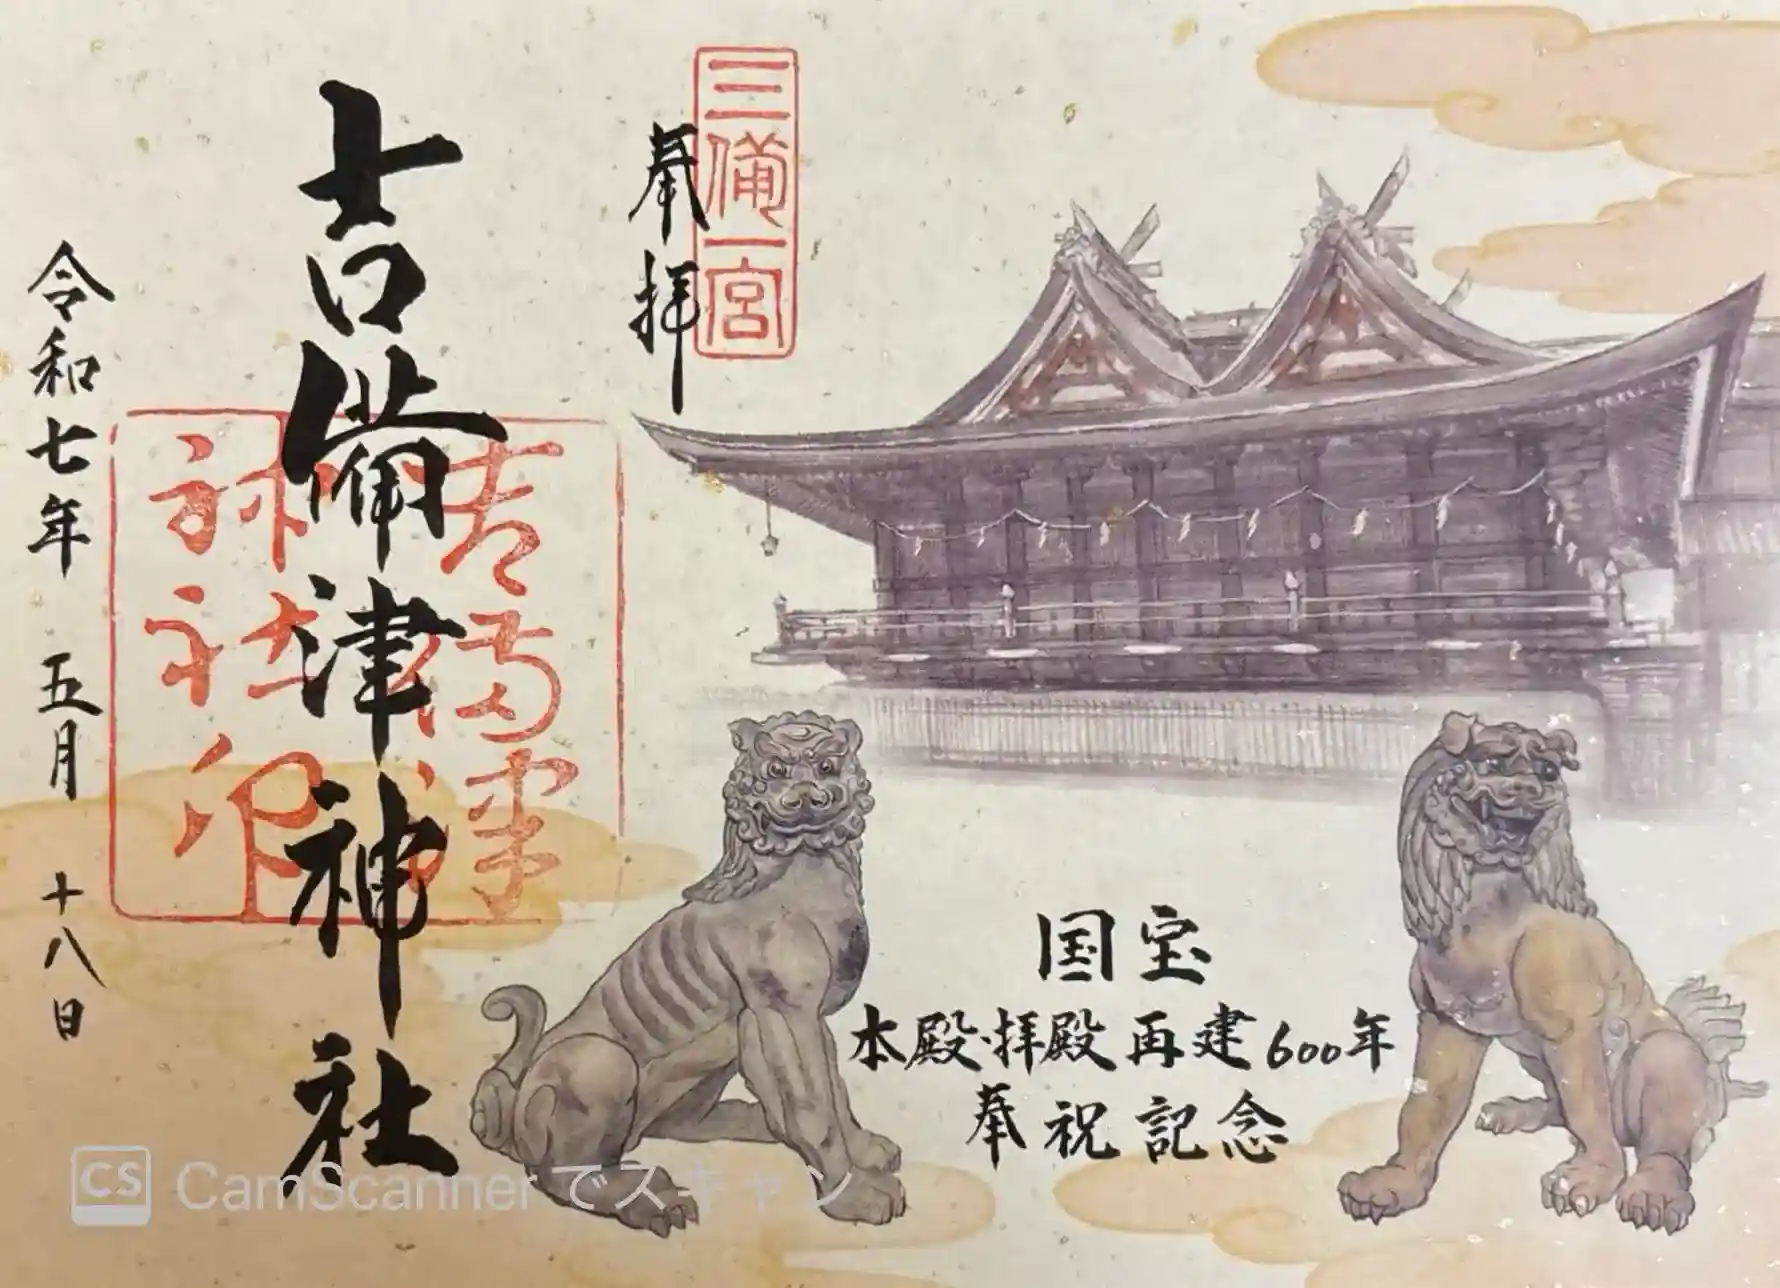 三備一宮
奉拝
国宝
本殿・拝殿再建600年
奉祝記念
吉備津神社
吉備津
神社印
令和七年 五月 十八日
CS CamScanner でスキャン